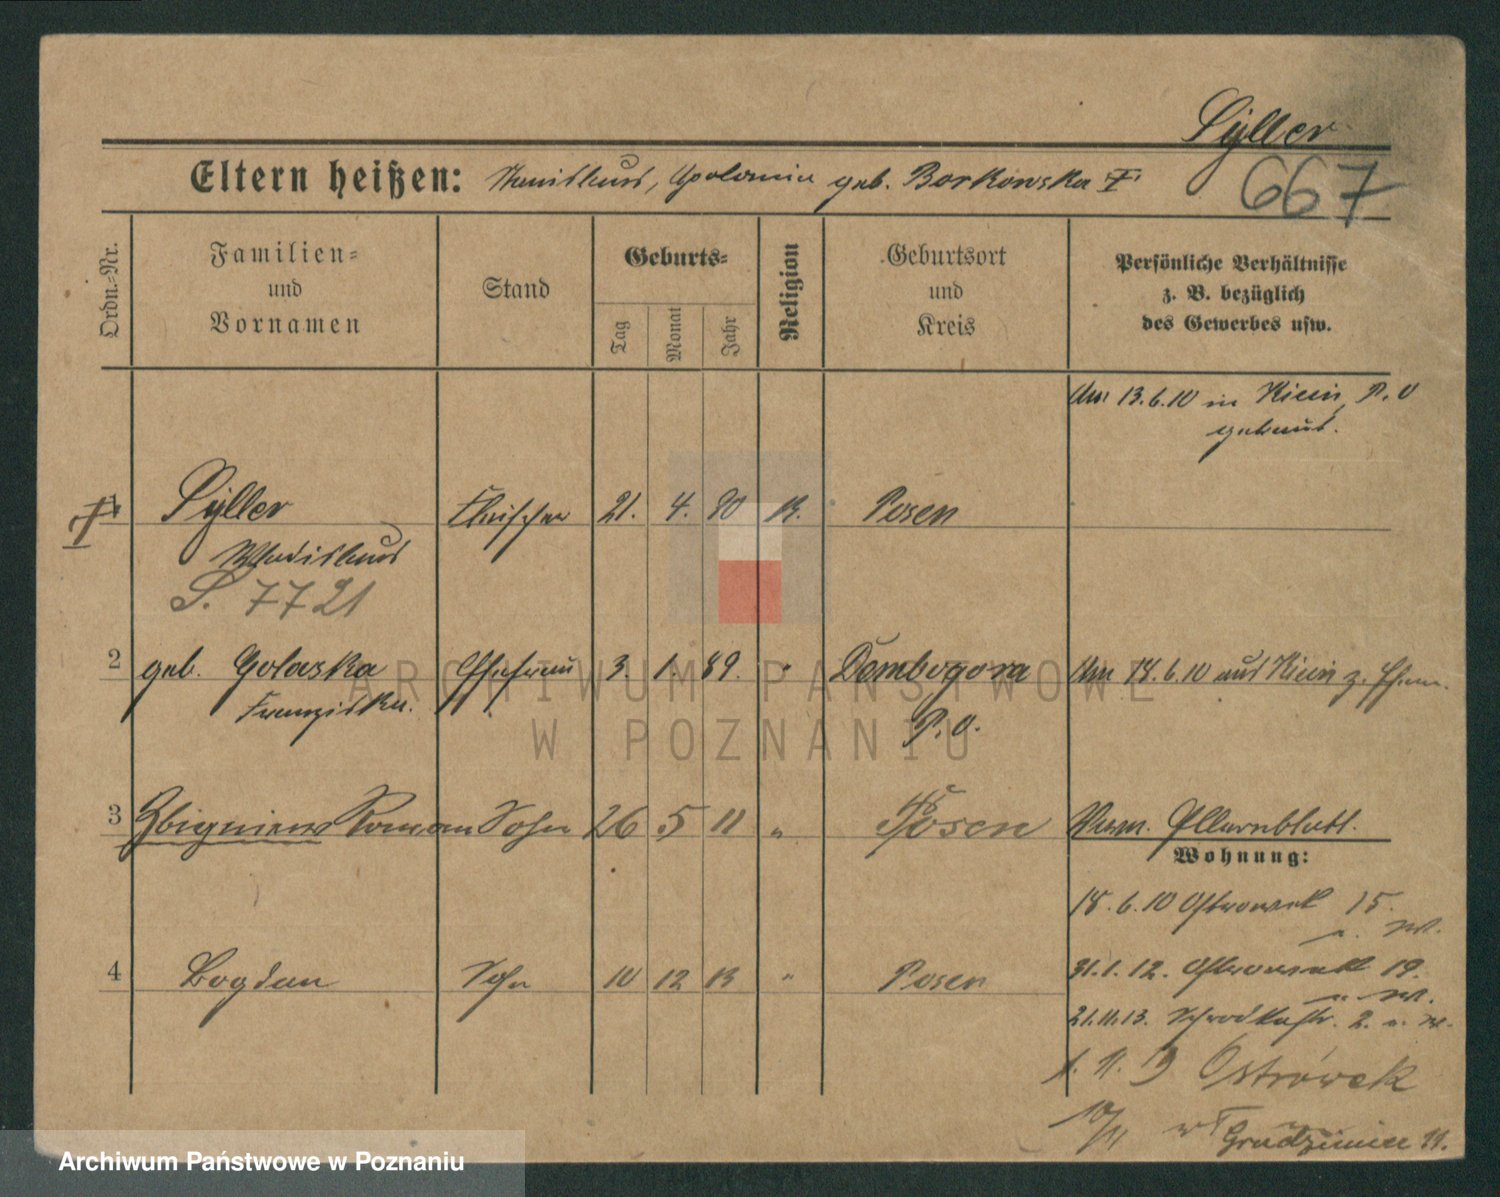 Syller
Eltern heißen: Stanislaus, Apolonia geb. Borkowska
667
Ordn.-Nr.
Familien- und Vornamen
Stand
Geburts-
Tag
Monat
Jahr
Religion
Geburtsort und Kreis
Persönliche Verhältnisse z. B. bezüglich des Gewerbes usw.
Am 13.6.10 in Kicin, P. O
getraut.
1 Syller Fleischer 21. 4. 80 K. Posen
Wladislaus
S. 7721
2 geb. Golaska Ehefrau 3. 1. 89. " Dembogora Am 18.6.10 aus Kicin z.
Franziska. P. O.
3 Zbigniew Roman Sohn 26 5 11 " Posen
Wohnung:
18.6.10 Ostrowek 15.
4 Bogdan Sohn 10 12 13 " Posen 31.1.12. Ostrowek 19.
21.11.13. Schrodkastr. 2.
1. 11. 19 Ostrówek
10/11 Grudzieniec 11.
ARCHIWUM PAŃSTWOWE
W POZNANIU
Archiwum Państwowe w Poznaniu